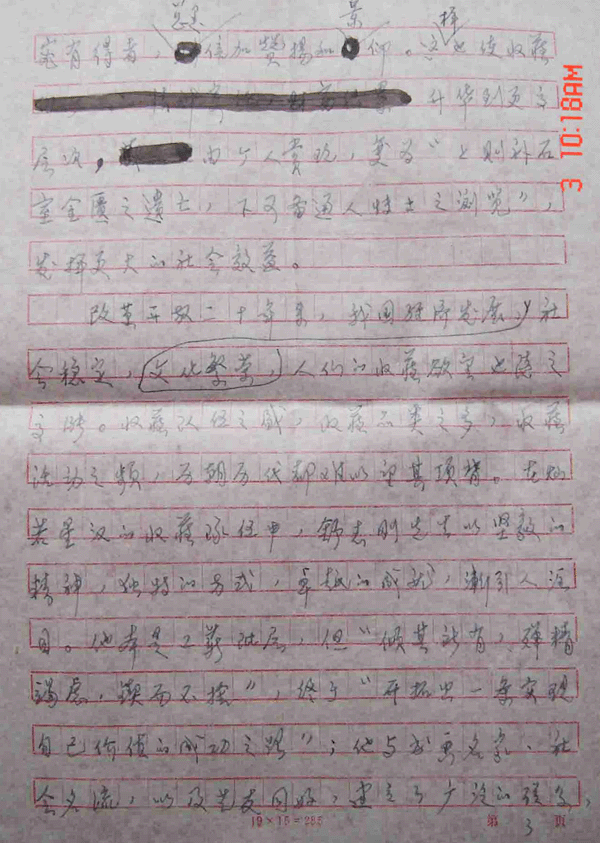 景 样
有得者，信加赞扬和仰。这也使收藏
升华到更高
层次，由个人赏玩，变为“上则补石
室金匮之遗亡，下可备通人特士之浏览”，
发挥更大的社会效益。
改革开放二十年来，我国经济发展，社
会稳定，文化繁荣，人们的收藏欲望也随之
高涨。收藏队伍之盛，收藏品类之多，收藏
活动之频，历朝历代都难以望其项背。在灿
若星汉的收藏队伍中，刚先生以坚毅的
精神，独特的方式，卓越的成就，渐引人注
目。他本是工薪阶层，但“倾其所有，殚精
竭虑，锲而不舍”，终于“开拓出一条实现
自己价值的成功之路”；他与书画名家、社
会名流，以及藏友同好，建立了广泛的联系，
19×15=285
第 3 页
3 10:18AM